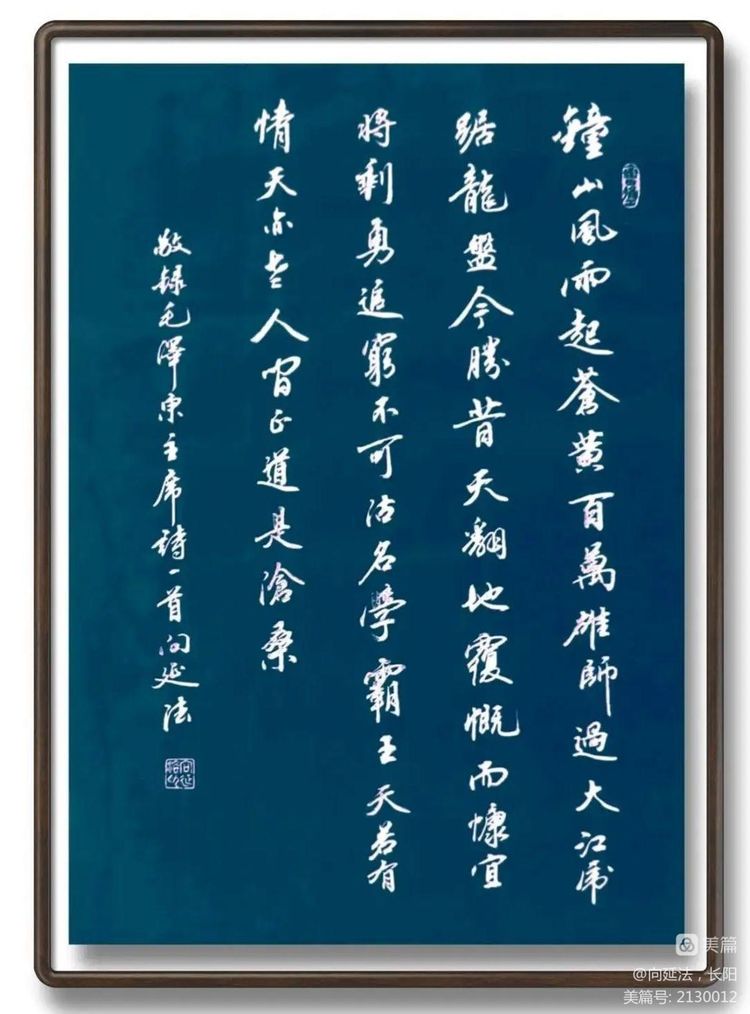 鐘山風雨起蒼黄百萬雄師過大江虎
踞龍盤今勝昔天翻地覆慨而慷宜
将剩勇追窮不可沽名學霸王天若有
情天亦老人間正道是滄桑
敬録毛澤東主席詩一首向延法
美篇
@向延法，长阳
美篇号: 2130012